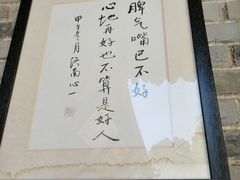 脾气嘴巴不好
心地再好也不算是好人
甲午冬月 济南 心一